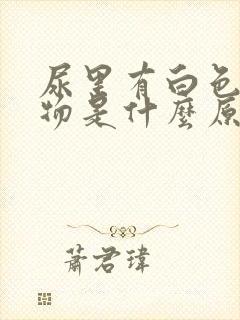 尿里有白色
物是什麼原
蕭君瑋